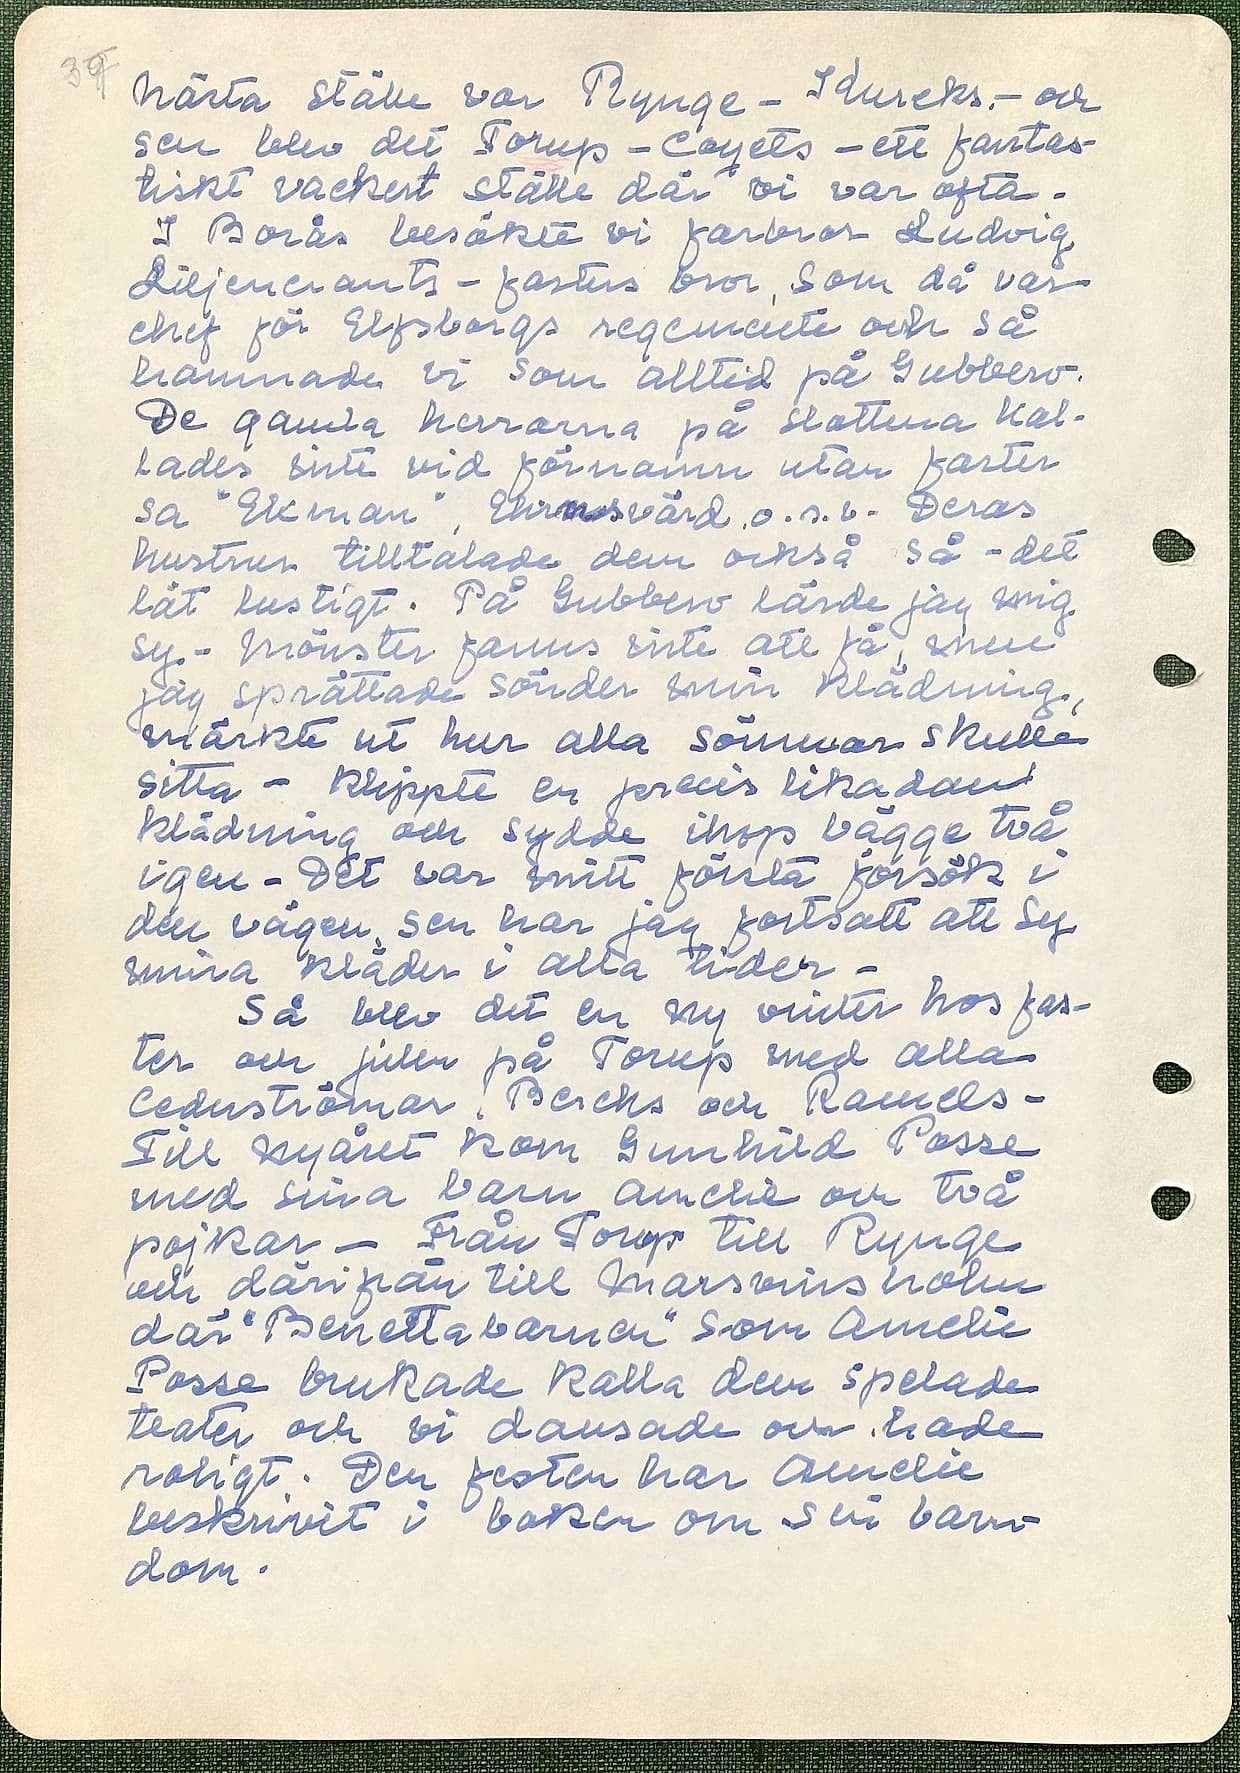 39
Närta ställe var Rynge - Iduncks. - och
sen blev det Torup - Coyets - ett fantas-
tiskt vackert ställe där vi var ofta.
I Borås besökte vi farbror Ludvig
Liljencrants - fasters bror, som då var
chef för Elfsborgs regemente och så
hamnade vi som alltid på Gubbero.
De gamla herrarna på slotten kal-
lades inte vid förnamn utan faster
sa "Ekman", Ehrensvärd o.s.v. Deras
hustrur tilltalade dem också så - det
lät lustigt. På Gubbero lärde jag mig
sy. - Mönster fanns inte att få, men
jag sprättade sönder min klädning,
märkte ut hur alla sömmar skulle
sitta - klippte en precis likadan
klädning och sydde ihop bägge två
igen - Det var mitt första försök i
den vägen, sen har jag fortsatt att sy
mina kläder i alla tider -
Så blev det en ny vinter hos fas-
ter och julen på Torup med alla
Cederströmar, Becks och Ramels -
Till nyåret kom Gunhild Posse
med sina barn Amelie och två
pojkar - Från Torup till Rynge
och därifrån till Marsvinsholm
där "Benettabarnen" som Amelie
Posse brukade kalla dem spelade
teater och vi dansade och hade
roligt. Den festen har Amelie
beskrivit i boken om sin barn-
dom.